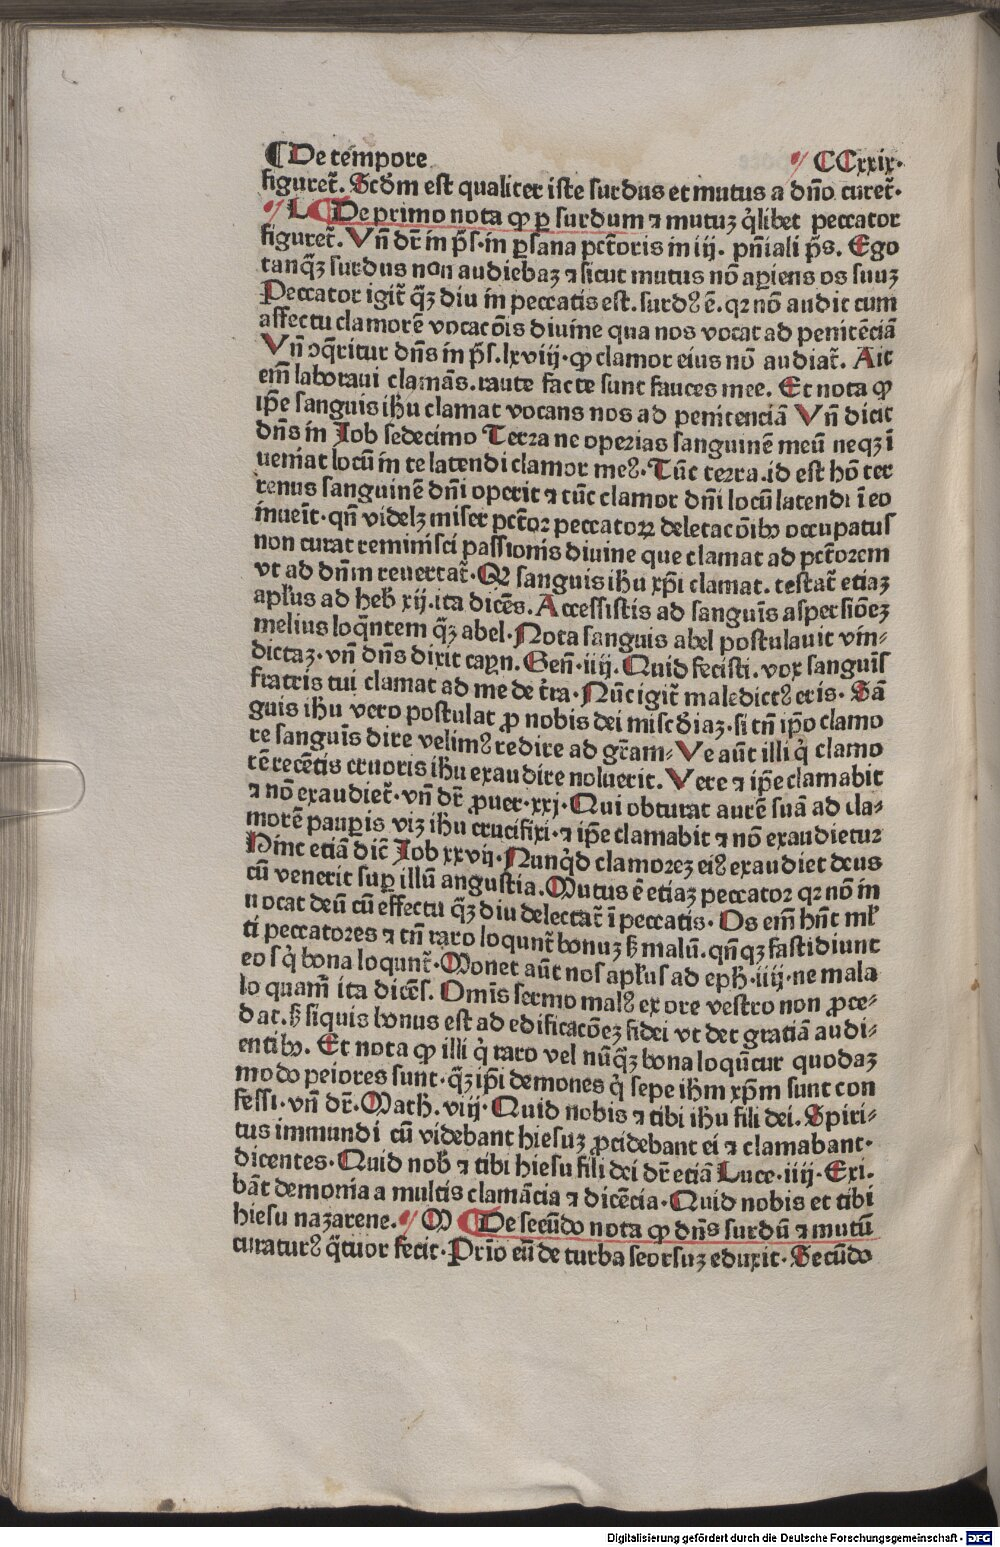 ¶ De tempore CCxxix·
figureť. Scďm est qualiter iste surdus et mutus a dño cureť·
L ¶ De primo nota ꝙ ꝑ surdum ⁊ mutuꝫ q̇libet peccator
figureť. Vñ dr̄ in p̄s·in ꝑsana pctōris in iij. pñiali p̄s. Ego
tanq̄ꝫ surdus non audiebaꝫ ⁊ sicut mutus nō aꝑiens os suuꝫ
Peccator igiť q̄ꝫ diu in peccatis est. surdꝰ ē. qꝛ nō audit cum
affectu clamorē vocacōis diuine qua nos vocat ad penitēciā
Vñ ꝯq̄ritur dñs in p̄s. lxviij· ꝙ clamor eius nō audiať. Ait
em̄ laboraui clamās. raute facte sunt fauces mee. Et nota ꝙ
ip̄e sanguis ihu clamat vocans nos ad penitenciā Vñ dicit
dñs in Job sedecimo Terra ne operias sanguinē meū neqꝫ ī
ueniat locū in te latendi clamor meꝰ· Tūc terra. id est hō ter
renus sanguinē dñi operit ⁊ tūc clamor dñi locū latendi ī eo
inueīt· qñ videlꝫ miser pctōꝛ peccatoꝝ deletacōibꝫ occupatus
non curat reminisci passionis diuine que clamat ad pctōrem
vt ad dñm reuertať· Qꝛ sanguis ihu xp̄i clamat. testať etiaꝫ
apl̄us ad heb̄ xij. ita dicēs. Accessistis ad sanguīs aspersiōeꝫ
melius loq̄ntem q̄ꝫ abel· Nota sanguis abel postulauit vin⸗
dictaꝫ· vñ dñs dixit cayn. Geñ· iiij. Quid fecisti. vox sanguīs
fratris tui clamat ad me de ťra· Nūc igiť maledictꝰ eris· Sā
guis ihu vero postulat ꝓ nobis dei misc̄diaꝫ· si tñ ip̄o clamo
re sanguīs dire velimꝰ redire ad gr̄am⸗ Ve aūt illi q̇ clamo
rē recētis cruoris ihu exaudire noluerit. Vere ⁊ ip̄e clamabit
⁊ nō exaudieť· vñ dr̄ ꝓuer· xxj· Qui obturat aurē suā ad cla⸗
morē pauꝑis viꝫ ihu crucifixi· ⁊ ip̄e clamabit ⁊ nō exaudietur
Hinc etiā dic̄ Job xxvij· Nunq̇d clamoreꝫ eiꝰ exaudiet deus
cū venerit suꝑ illū angustia. Mutus ē etiaꝫ peccator qꝛ nō in
uocat deū cū effectu q̄ꝫ diu delectať ī peccatis· Os em̄ hñt ml̄
ti peccatores ⁊ tñ raro loqunť bonuꝫ ꝭ malū. qñqꝫ fastidiunt
eos q̇ bona loqunť· Monet aūt nos apl̄us ad eph̄· iiij· ne mala
loquam̄ ita dicēs. Omīs sermo malꝰ ex ore vestro non ꝓce⸗
dat. ꝭ siquis bonus est ad edificacōeꝫ fidei vt det gratiā audi⸗
entibꝫ. Et nota ꝙ illi q̇ raro vel nūq̄ꝫ bona loqūtur quodaꝫ
modo peiores sunt· q̄ꝫ ip̄i demones q̇ sepe ihm xp̄m sunt con
fessi· vñ dr̄. Math. viij· Quid nobis ⁊ tibi ihu fili dei. Spiri⸗
tus immundi cū videbant hiesuꝫ ꝓcidebant ei ⁊ clamabant·
dicentes· Quid nob̄ ⁊ tibi hiesu fili dei dr̄ etiā Luce· iiij· Exi.
bāt demonia a multis clamācia ⁊ dicēcia· Quid nobis et tibi
hiesu nazarene. M ¶ De secūdo nota ꝙ dñs surdū ⁊ mutū
curaturꝰ q̄tuor fecit· Prīo eū de turba seorsuꝫ eduxit· Secūdo
Digitalisierung gefördert durch die Deutsche Forschungsgemeinschaft - DFG